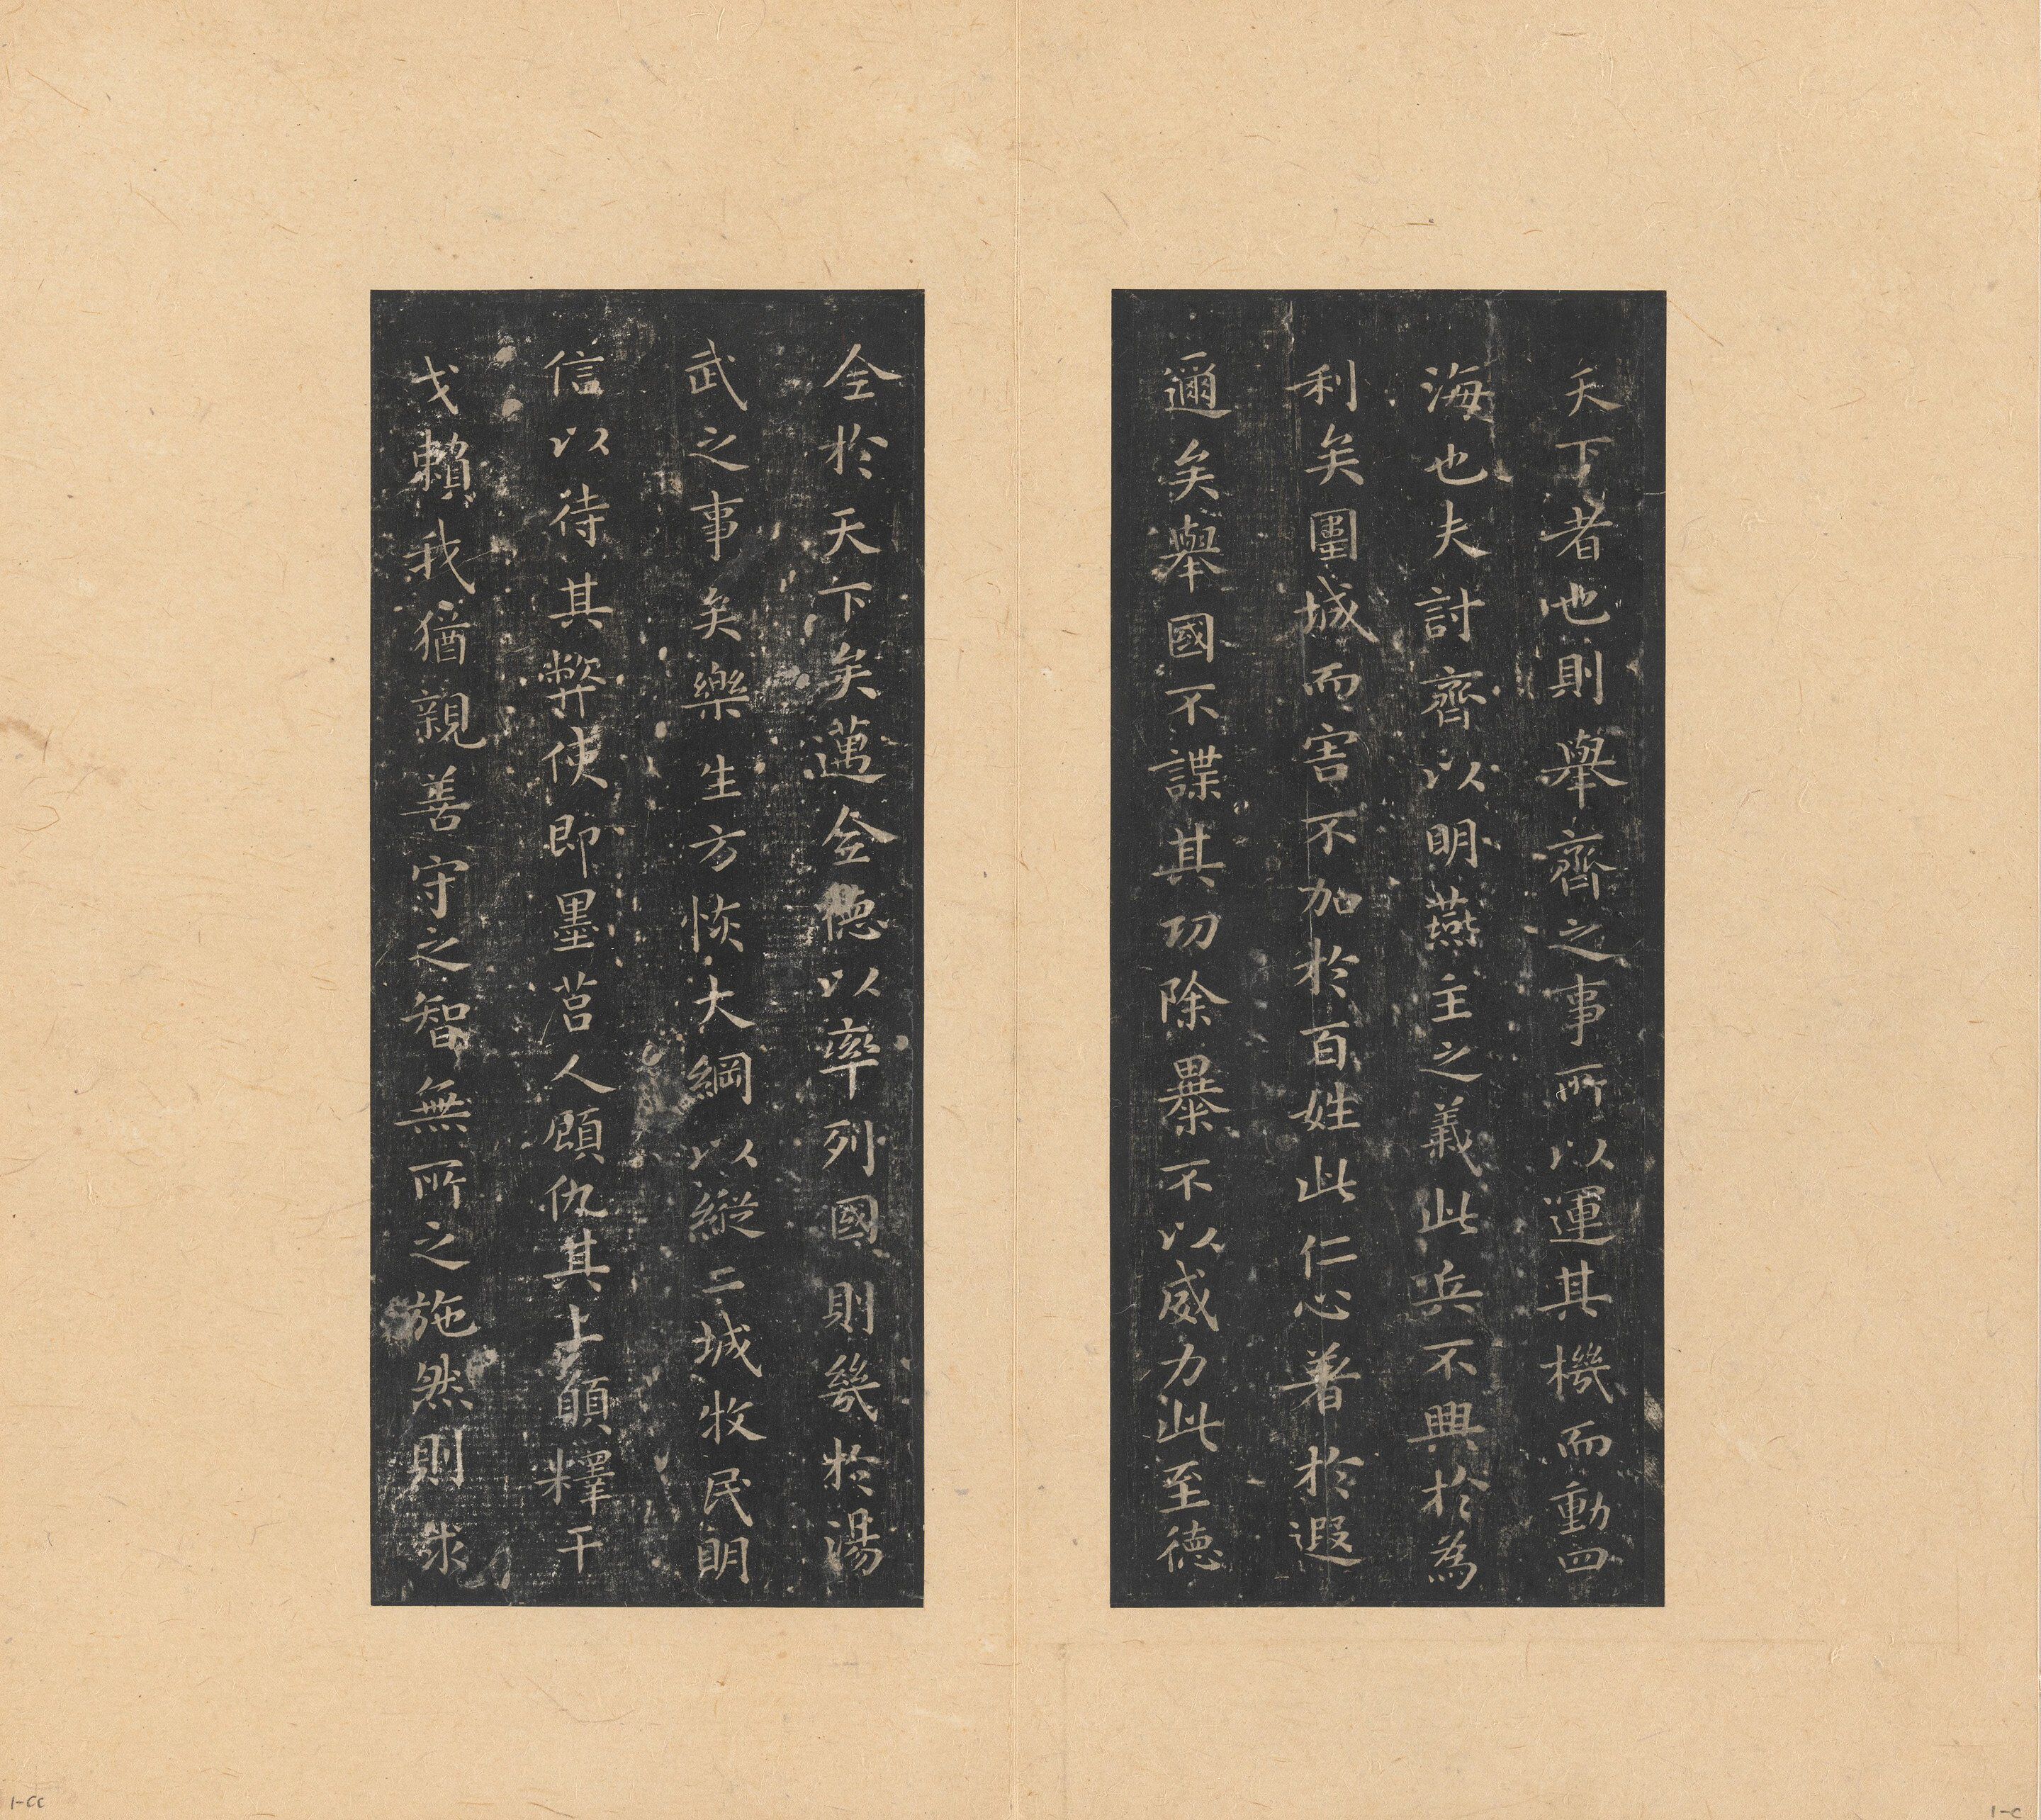 天下者也則舉齊之事所以運其機而動四
海也夫討齊以明燕主之義此兵不興於為
利矣圍城而害不加於百姓此仁心著於遐
邇矣舉國不謀其功除暴不以威力此至德
全於天下矣邁全德以率列國則幾於湯
武之事矣樂生方恢大綱以縱二城牧民明
信以待其弊使即墨莒人顧仇其上願釋干
戈賴我猶親善守之智無所之施然則求
1-CC
1-C